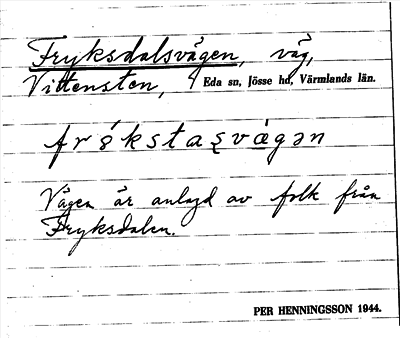 Fryksdalsvägen, väg,
Vittensten, Eda sn, Jösse hd, Värmlands län.
Vägen är anlagd av folk från
Fryksdalen.
PER HENNINGSSON 1944.